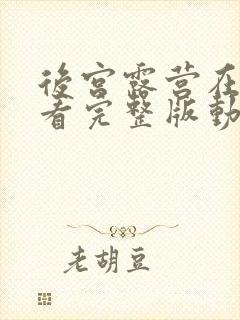 後宮露营在
看完整版動
老胡豆